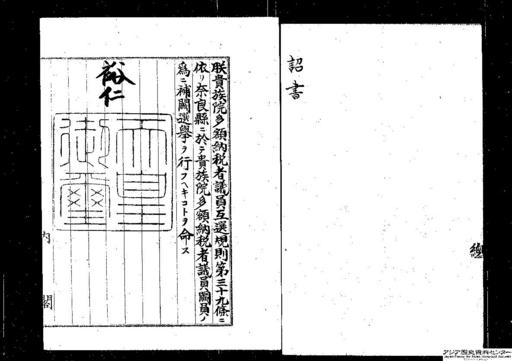 詔書
朕貴族院多額納税者議員互選規則第三十九條ニ
依リ奈良縣ニ於テ貴族院多額納税者議員闕員ノ
爲ニ補闕選擧ヲ行フヘキコトヲ命ス
裕仁
天皇
御璽
内
閣
アジア歴史資料センター